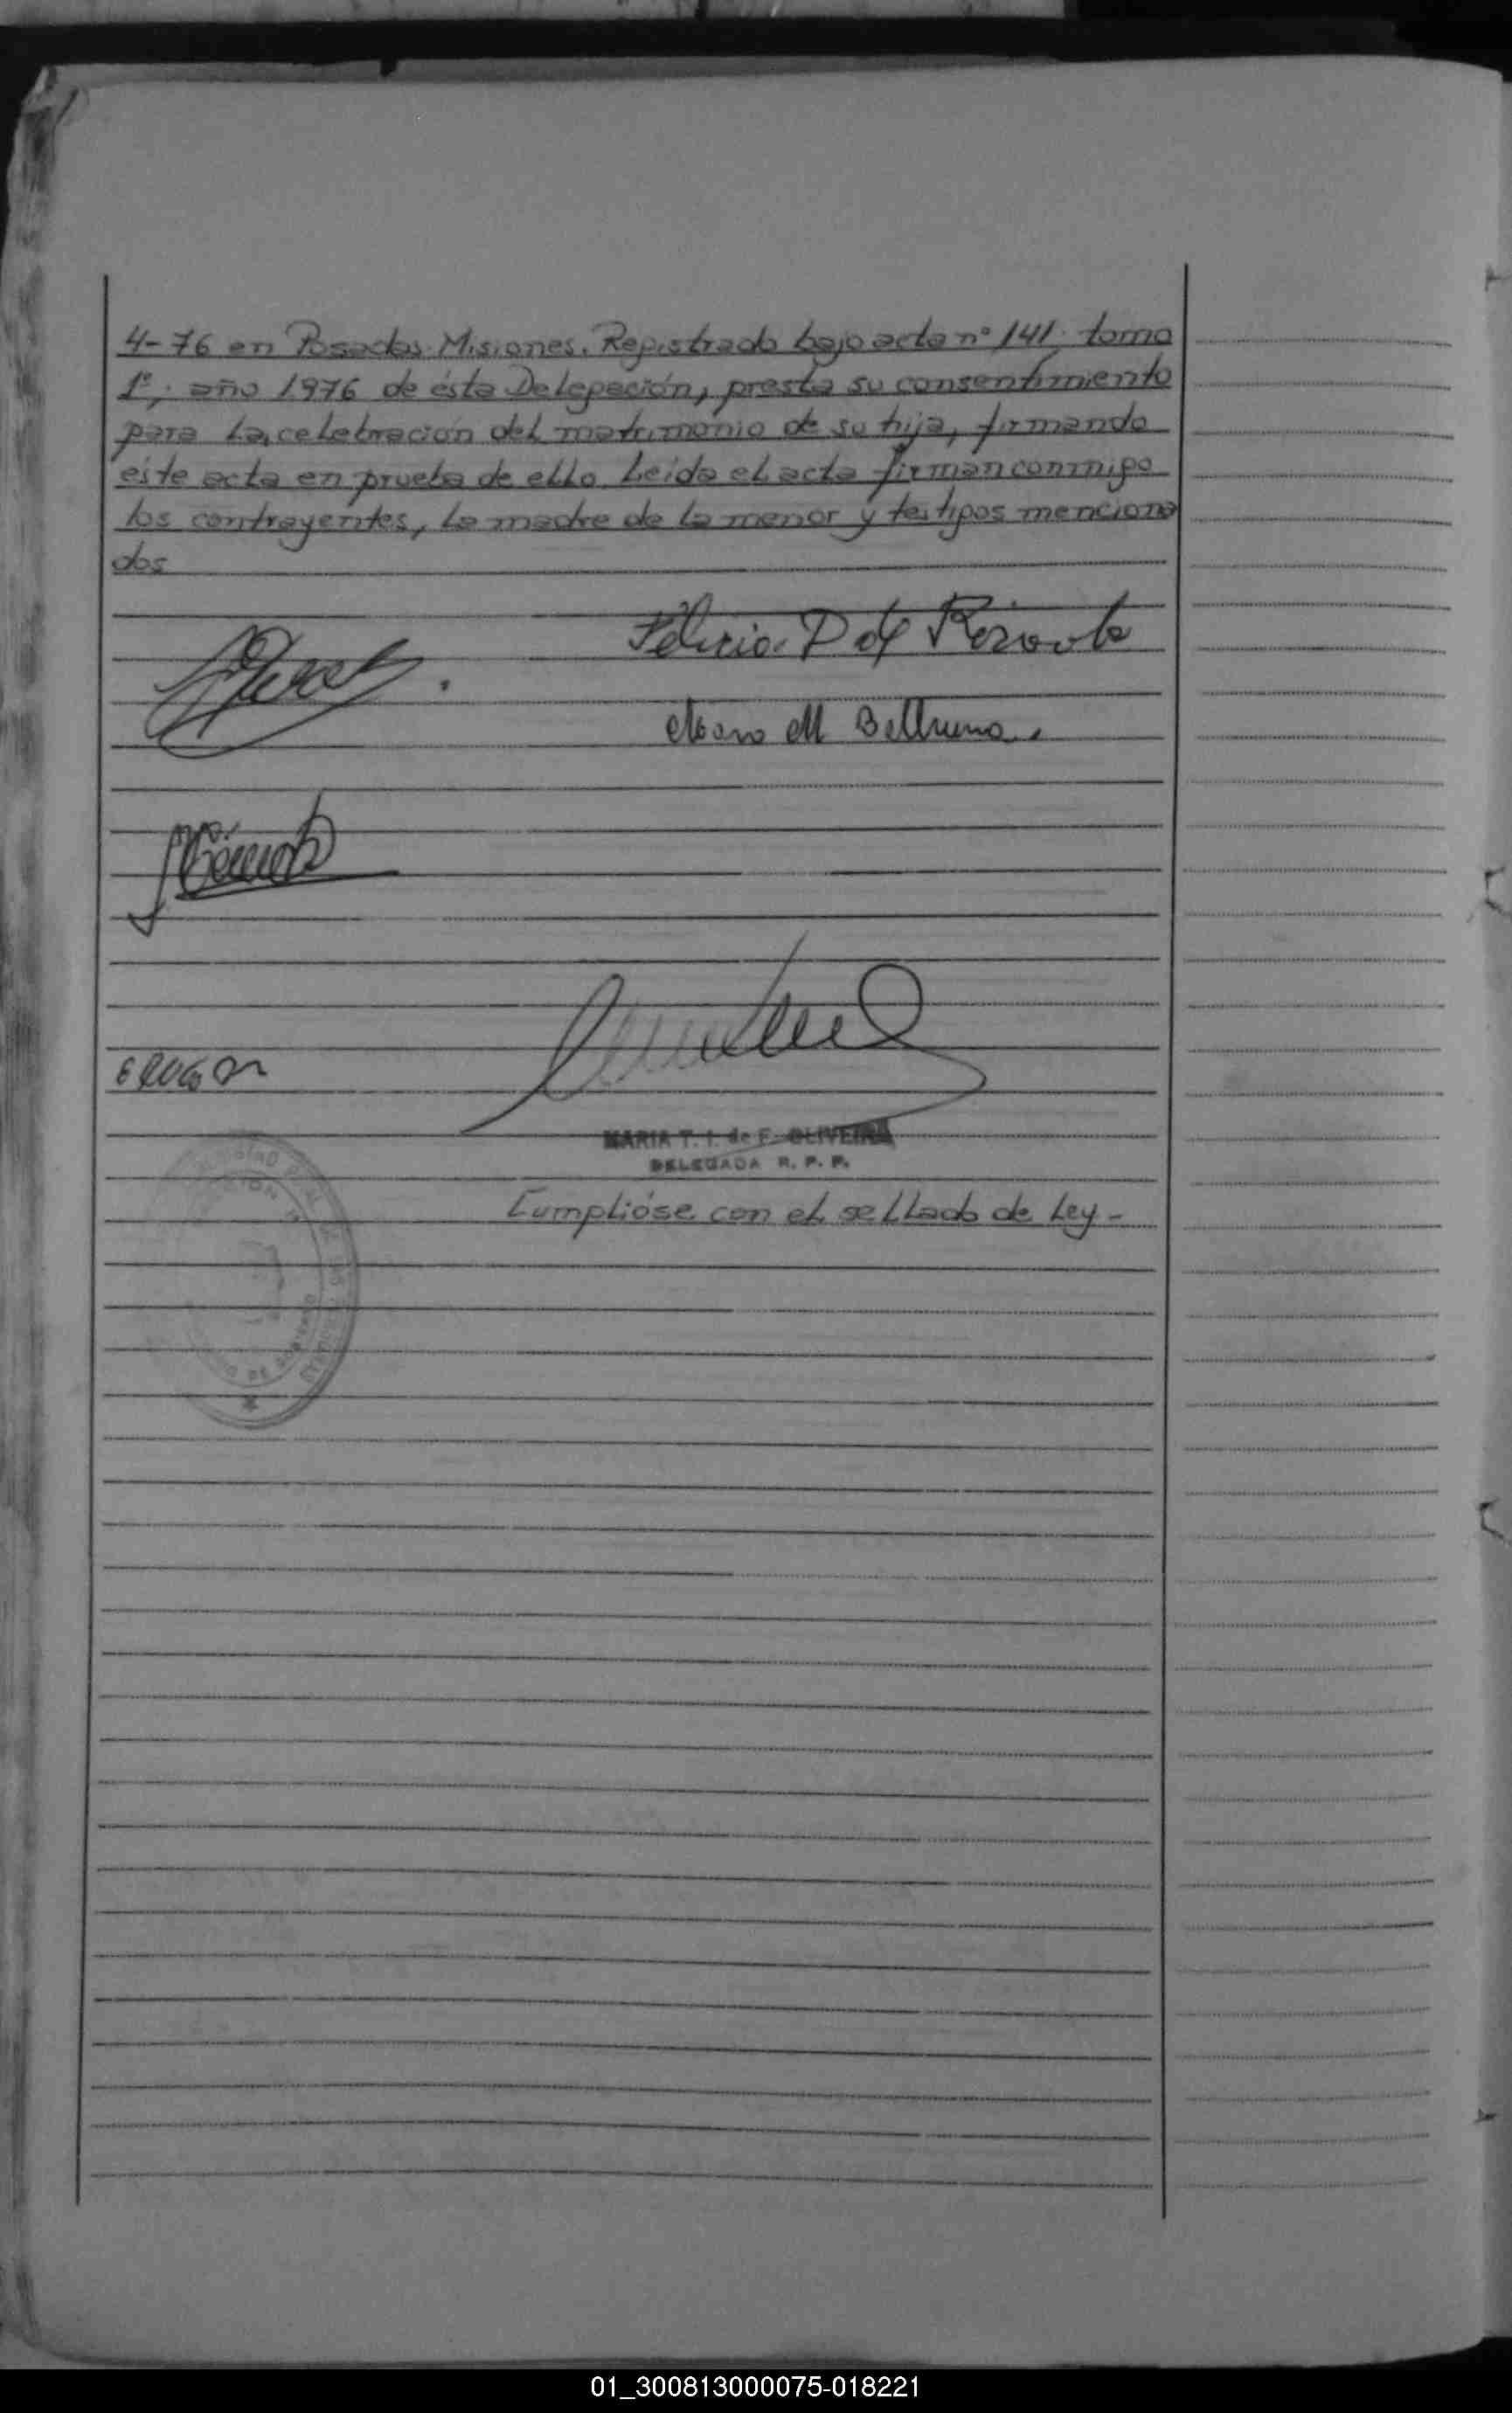 4-76 en Posadas Misiones. Registrado bajo acta nº 141. tomo
1º, año 1976 de ésta Delegación, presta su consentimiento
para la celebración del matrimonio de su hija, firmando
éste acta en prueba de ello. Leida el acta firman conmigo
los contrayentes, la madre de la menor y testigos menciona
dos
Felicia P de
M Beltrama.
MARIA T. I. de F. OLIVEIRA
DELEGADA R. P. P.
Cumplióse con el sellado de Ley-
01_300813000075-018221